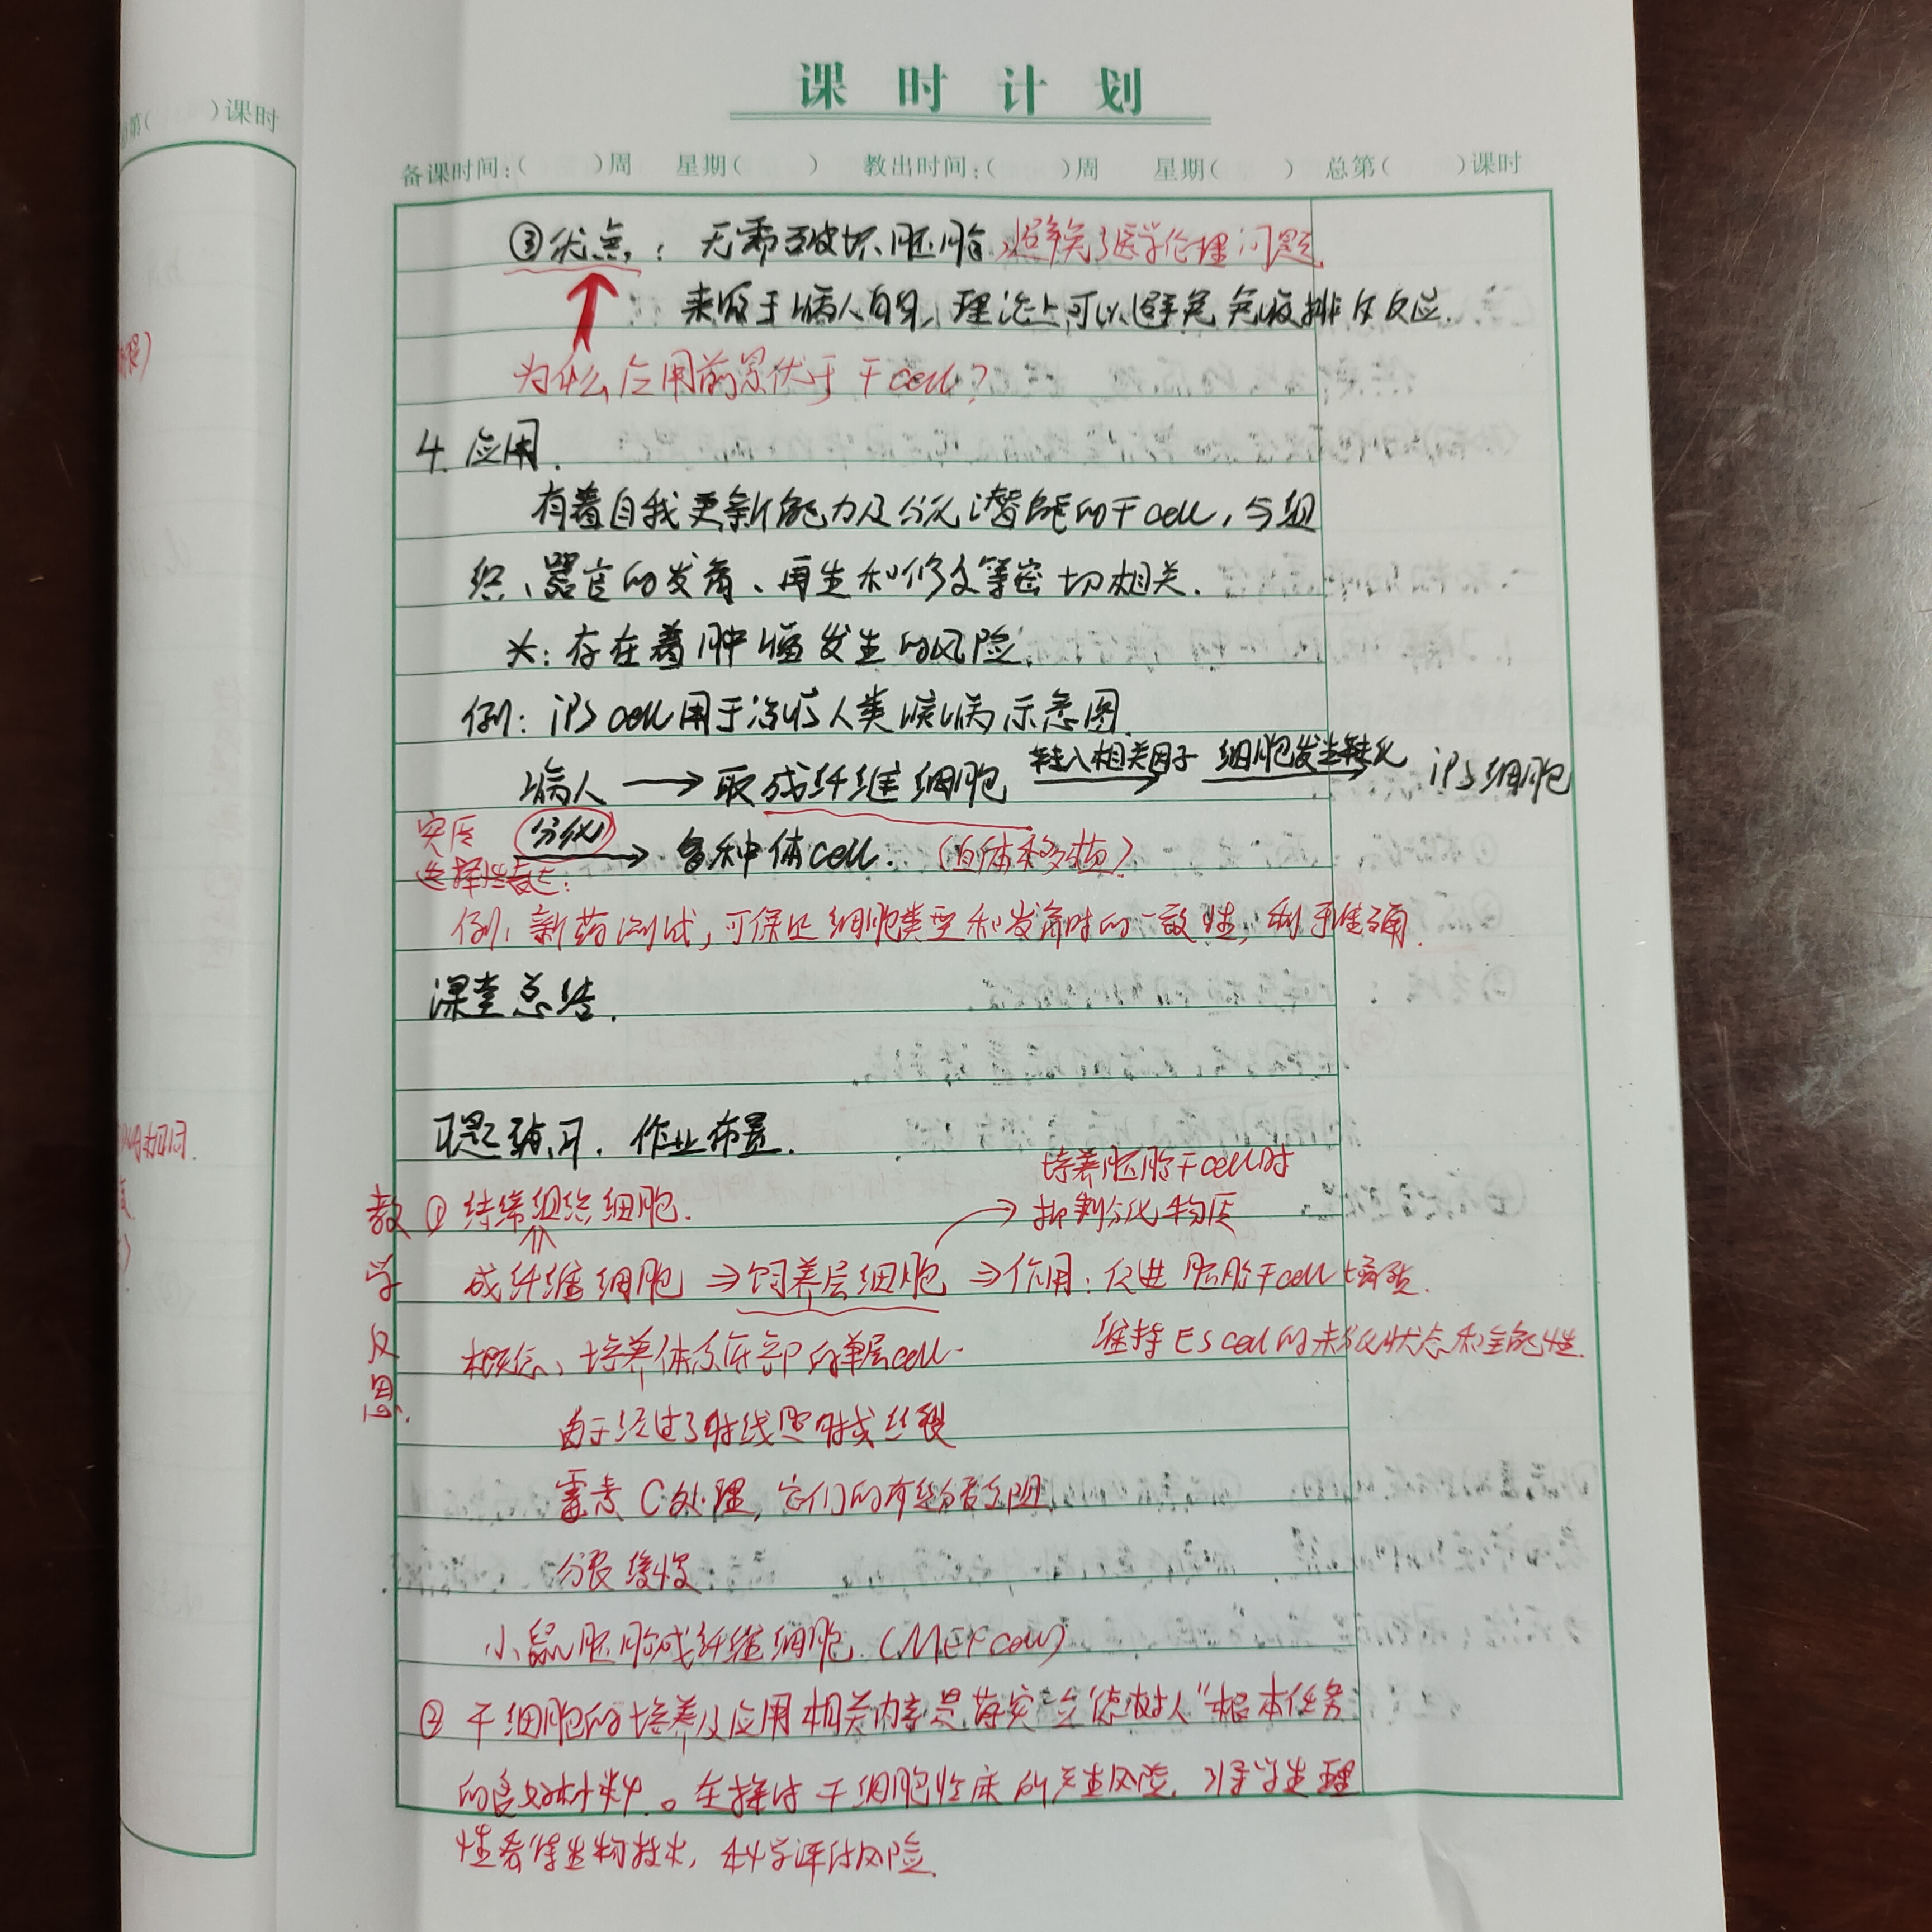 课时计划
第( )课时
备课时间:( )周 星期( ) 教出时间:( )周 星期( ) 总第( )课时
③优点：无需破坏胚胎，避免了医学伦理问题
来源于病人自身，理论上可以避免免疫排斥反应.
为什么应用前景优于干cell?
4. 应用.
有着自我更新能力及分化潜能的干cell，与组
织、器官的发育、再生和修复等密切相关.
*：存在着肿瘤发生的风险.
例：iPS cell用于治疗人类疾病示意图.
病人 → 取成纤维细胞 转入相关因子→ 细胞发生转化→ iPS细胞
实质 分化→ 各种体cell. (自体移植)
选择性表达.
例：新药测试，可保证细胞类型和发育时的一致性，利于准确.
课堂总结.
习题练习，作业布置.
教学反思.
① 结缔组织细胞.
培养胚胎干cell时
→ 抑制分化物质
成纤维细胞 ⇒ 饲养层细胞 ⇒ 作用：促进胚胎干cell增殖.
维持ES cell的未分化状态和全能性.
概念、培养体系底部的单层cell.
由于经过了射线照射或丝裂
霉素C处理，它们的有丝分裂受阻
分裂缓慢
小鼠胚胎成纤维细胞.(MEF cell)
② 干细胞的培养及应用相关内容是落实“立德树人”根本任务
的良好材料。在探讨干细胞临床所产生风险，引导学生理
性看待生物技术，科学评估风险.